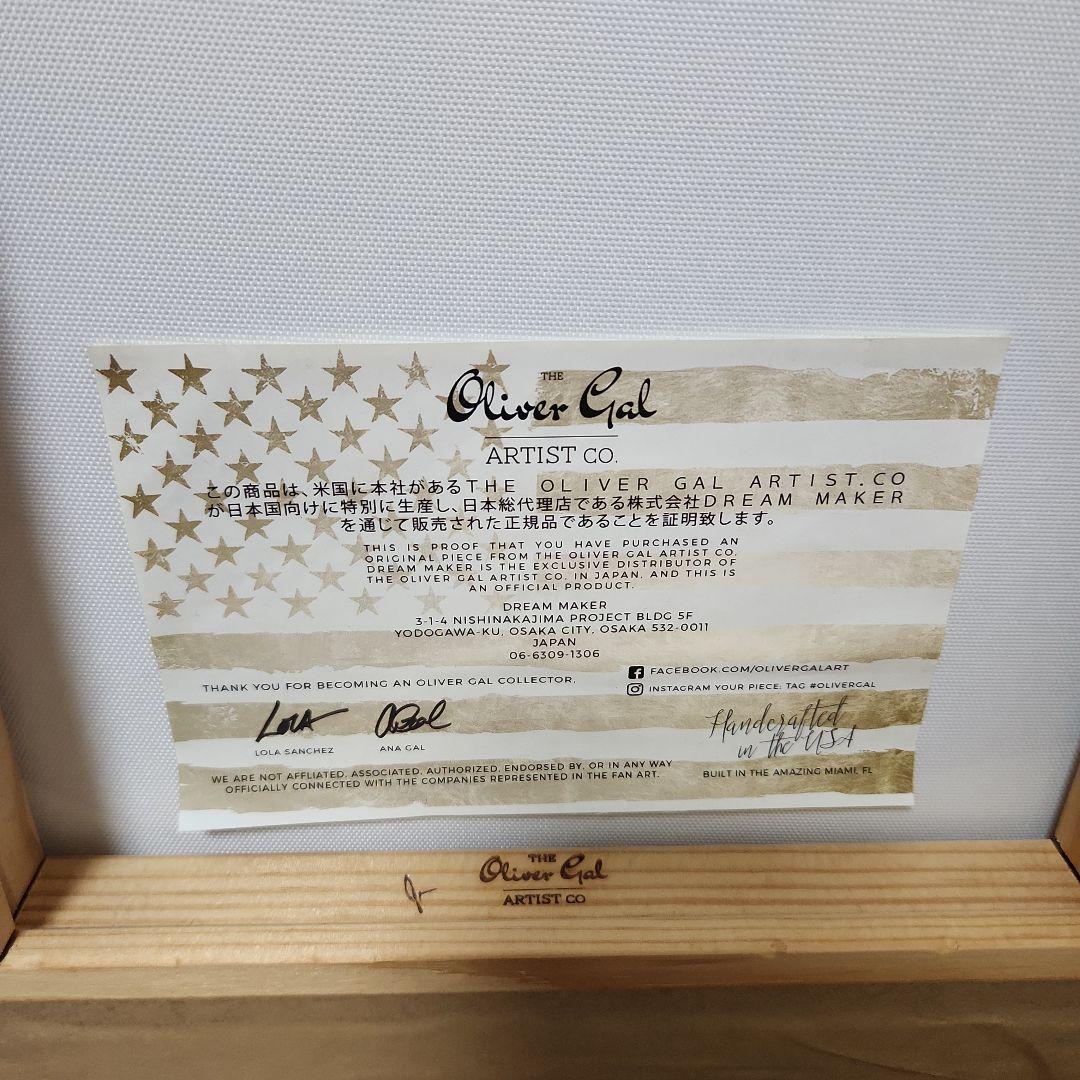 THE
Oliver Gal
ARTIST CO.
この商品は、米国に本社があるTHE OLIVER GAL ARTIST.CO
が日本国向けに特別に生産し、日本総代理店である株式会社DREAM MAKER
を通じて販売された正規品であることを証明致します。
THIS IS PROOF THAT YOU HAVE PURCHASED AN
ORIGINAL PIECE FROM THE OLIVER GAL ARTIST CO.
DREAM MAKER IS THE EXCLUSIVE DISTRIBUTOR OF
THE OLIVER GAL ARTIST CO. IN JAPAN, AND THIS IS
AN OFFICIAL PRODUCT.
DREAM MAKER
3-1-4 NISHINAKAJIMA PROJECT BLDG 5F
YODOGAWA-KU, OSAKA CITY, OSAKA 532-0011
JAPAN
06-6309-1306
THANK YOU FOR BECOMING AN OLIVER GAL COLLECTOR.
FACEBOOK.COM/OLIVERGALART
INSTAGRAM YOUR PIECE: TAG #OLIVERGAL
LOLA
LOLA SANCHEZ
ANA GAL
Handcrafted
in the USA
WE ARE NOT AFFLIATED, ASSOCIATED, AUTHORIZED, ENDORSED BY, OR IN ANY WAY
OFFICIALLY CONNECTED WITH THE COMPANIES REPRESENTED IN THE FAN ART.
BUILT IN THE AMAZING MIAMI, FL
THE
Oliver Gal
ARTIST CO